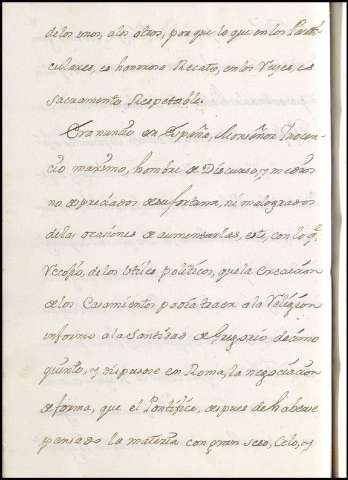 de los unos, a los otros, por que lo que en los Parti-
culares, es honoroso Recato, en los Reyes, es
sacramento Respetable.
Era nuncio en España, Monseñor Inocen-
cio maximo, hombre de Discurso, y medios
no despreciados de su fortuna, ni malogrados
de las ocasiones de aumentarlas, este, con lo q.
Recojio, de los utiles politicos, que la execucion
de los Casamientos podia traer a la Religion
informo a la Santidad de Gregorio decimo
quinto, y dispusose en Roma, la negociacion
de forma, que el Pontifice, despues de haberse
pensado la materia con gran seso, Celo, y